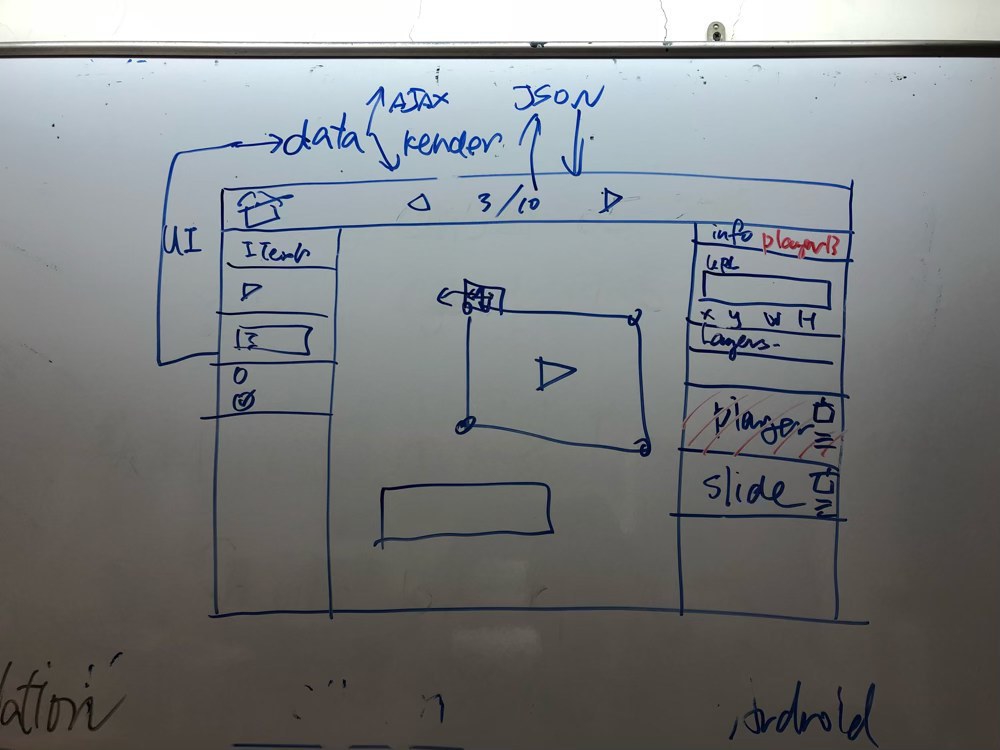 AJAX JSON
data render
3/10
UI
Items
info player
URL
x y W H
Layers
player
slide
Android